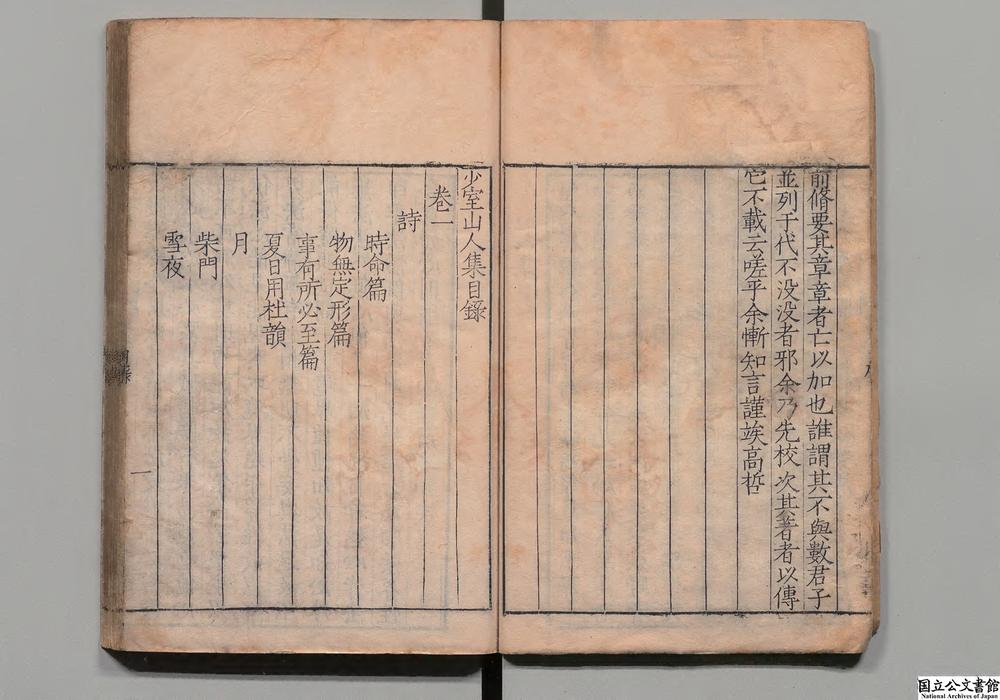 前脩要其章章者亡以加也誰謂其不與數君子
並列千代不没没者邪余乃先校次其著者以傳
它不載云嗟乎余慚知言謹竢高哲
少室山人集目錄
卷一
詩
時命篇
物無定形篇
事有所必至篇
夏日用杜韻
月
柴門
雪夜
一
国立公文書館
National Archives of Japan